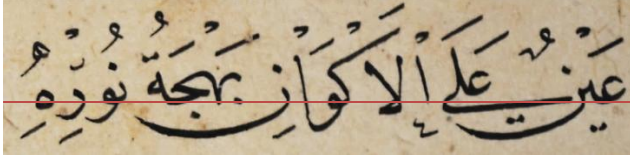 عَيْنٌ عَلَى الْاَكْوَانِ بَهْجَةُ نُورِهِ